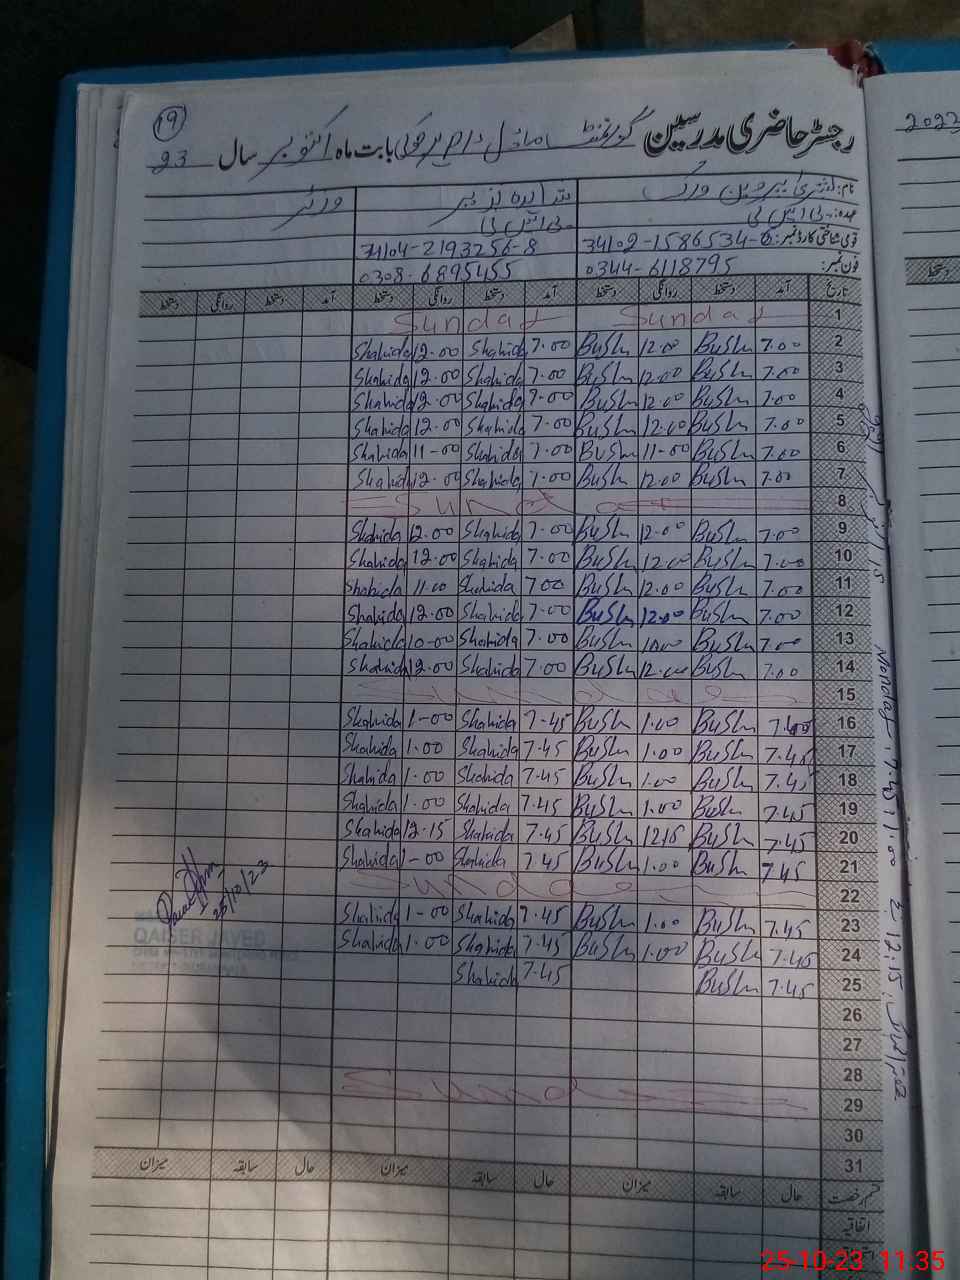 19
رجسٹر حاضری مدرسین گورنمنٹ ماڈل بابت ماہ اکتوبر سال 23
نام: بشریٰ پروین ورک شاہدہ نذیر وزٹر
عہدہ: پی ایس ٹی پی ایس ٹی
قومی شناختی کارڈ نمبر: 34102-1586534-6 34104-2193256-8
فون نمبر: 0344-6118795 0308-6895455
تاریخ آمد دستخط روانگی دستخط آمد دستخط روانگی دستخط آمد دستخط روانگی دستخط
1 Sunday Sunday
2 7.00 BuSh 12.00 BuSh 7.00 Shahida 12.00 Shahida
3 7.00 BuSh 12.00 BuSh 7.00 Shahida 12.00 Shahida
4 7.00 BuSh 12.00 BuSh 7.00 Shahida 12.00 Shahida
5 7.00 BuSh 12.00 BuSh 7.00 Shahida 12.00 Shahida
6 7.00 BuSh 11-00 BuSh 7.00 Shahida 11-00 Shahida
7 7.00 BuSh 12.00 BuSh 7.00 Shahida 12.00 Shahida
8 Sunday
9 7.00 BuSh 12.00 BuSh 7.00 Shahida 12.00 Shahida
10 7.00 BuSh 12.00 BuSh 7.00 Shahida 12.00 Shahida
11 7.00 BuSh 12.00 BuSh 7.00 Shahida 11.00 Shahida
12 7.00 BuSh 12.00 BuSh 7.00 Shahida 12.00 Shahida
13 7.00 BuSh 10.00 BuSh 7.00 Shahida 10-00 Shahida
14 7.00 BuSh 12.00 BuSh 7.00 Shahida 12.00 Shahida
15 Sunday
16 BuSh 1.00 BuSh 7.45 Shahida 1-00 Shahida
17 7.45 BuSh 1.00 BuSh 7.45 Shahida 1.00 Shahida
18 7.45 BuSh 1.00 BuSh 7.45 Shahida 1.00 Shahida
19 7.45 BuSh 1.00 BuSh 7.45 Shahida 1.00 Shahida
20 7.45 BuSh 12.15 BuSh 7.45 Shahida 12.15 Shahida
21 7.45 BuSh 1.00 BuSh 7.45 Shahida 1-00 Shahida
22 Sunday
23 7.45 BuSh 1.00 BuSh 7.45 Shahida 1-00 Shahida
24 7.45 BuSh 1.00 BuSh 7.45 Shahida 1.00 Shahida
25 7.45 BuSh 7.45 Shahida
26
27
28
29 Sunday
30
31
25/10/23
QAISER JAVED
قسم رخصت حال سابقہ میزان حال سابقہ میزان حال سابقہ میزان
اتفاقیہ
Monday 7.45 1.00 12.15
2023
دستخط
25-10-23 11:35